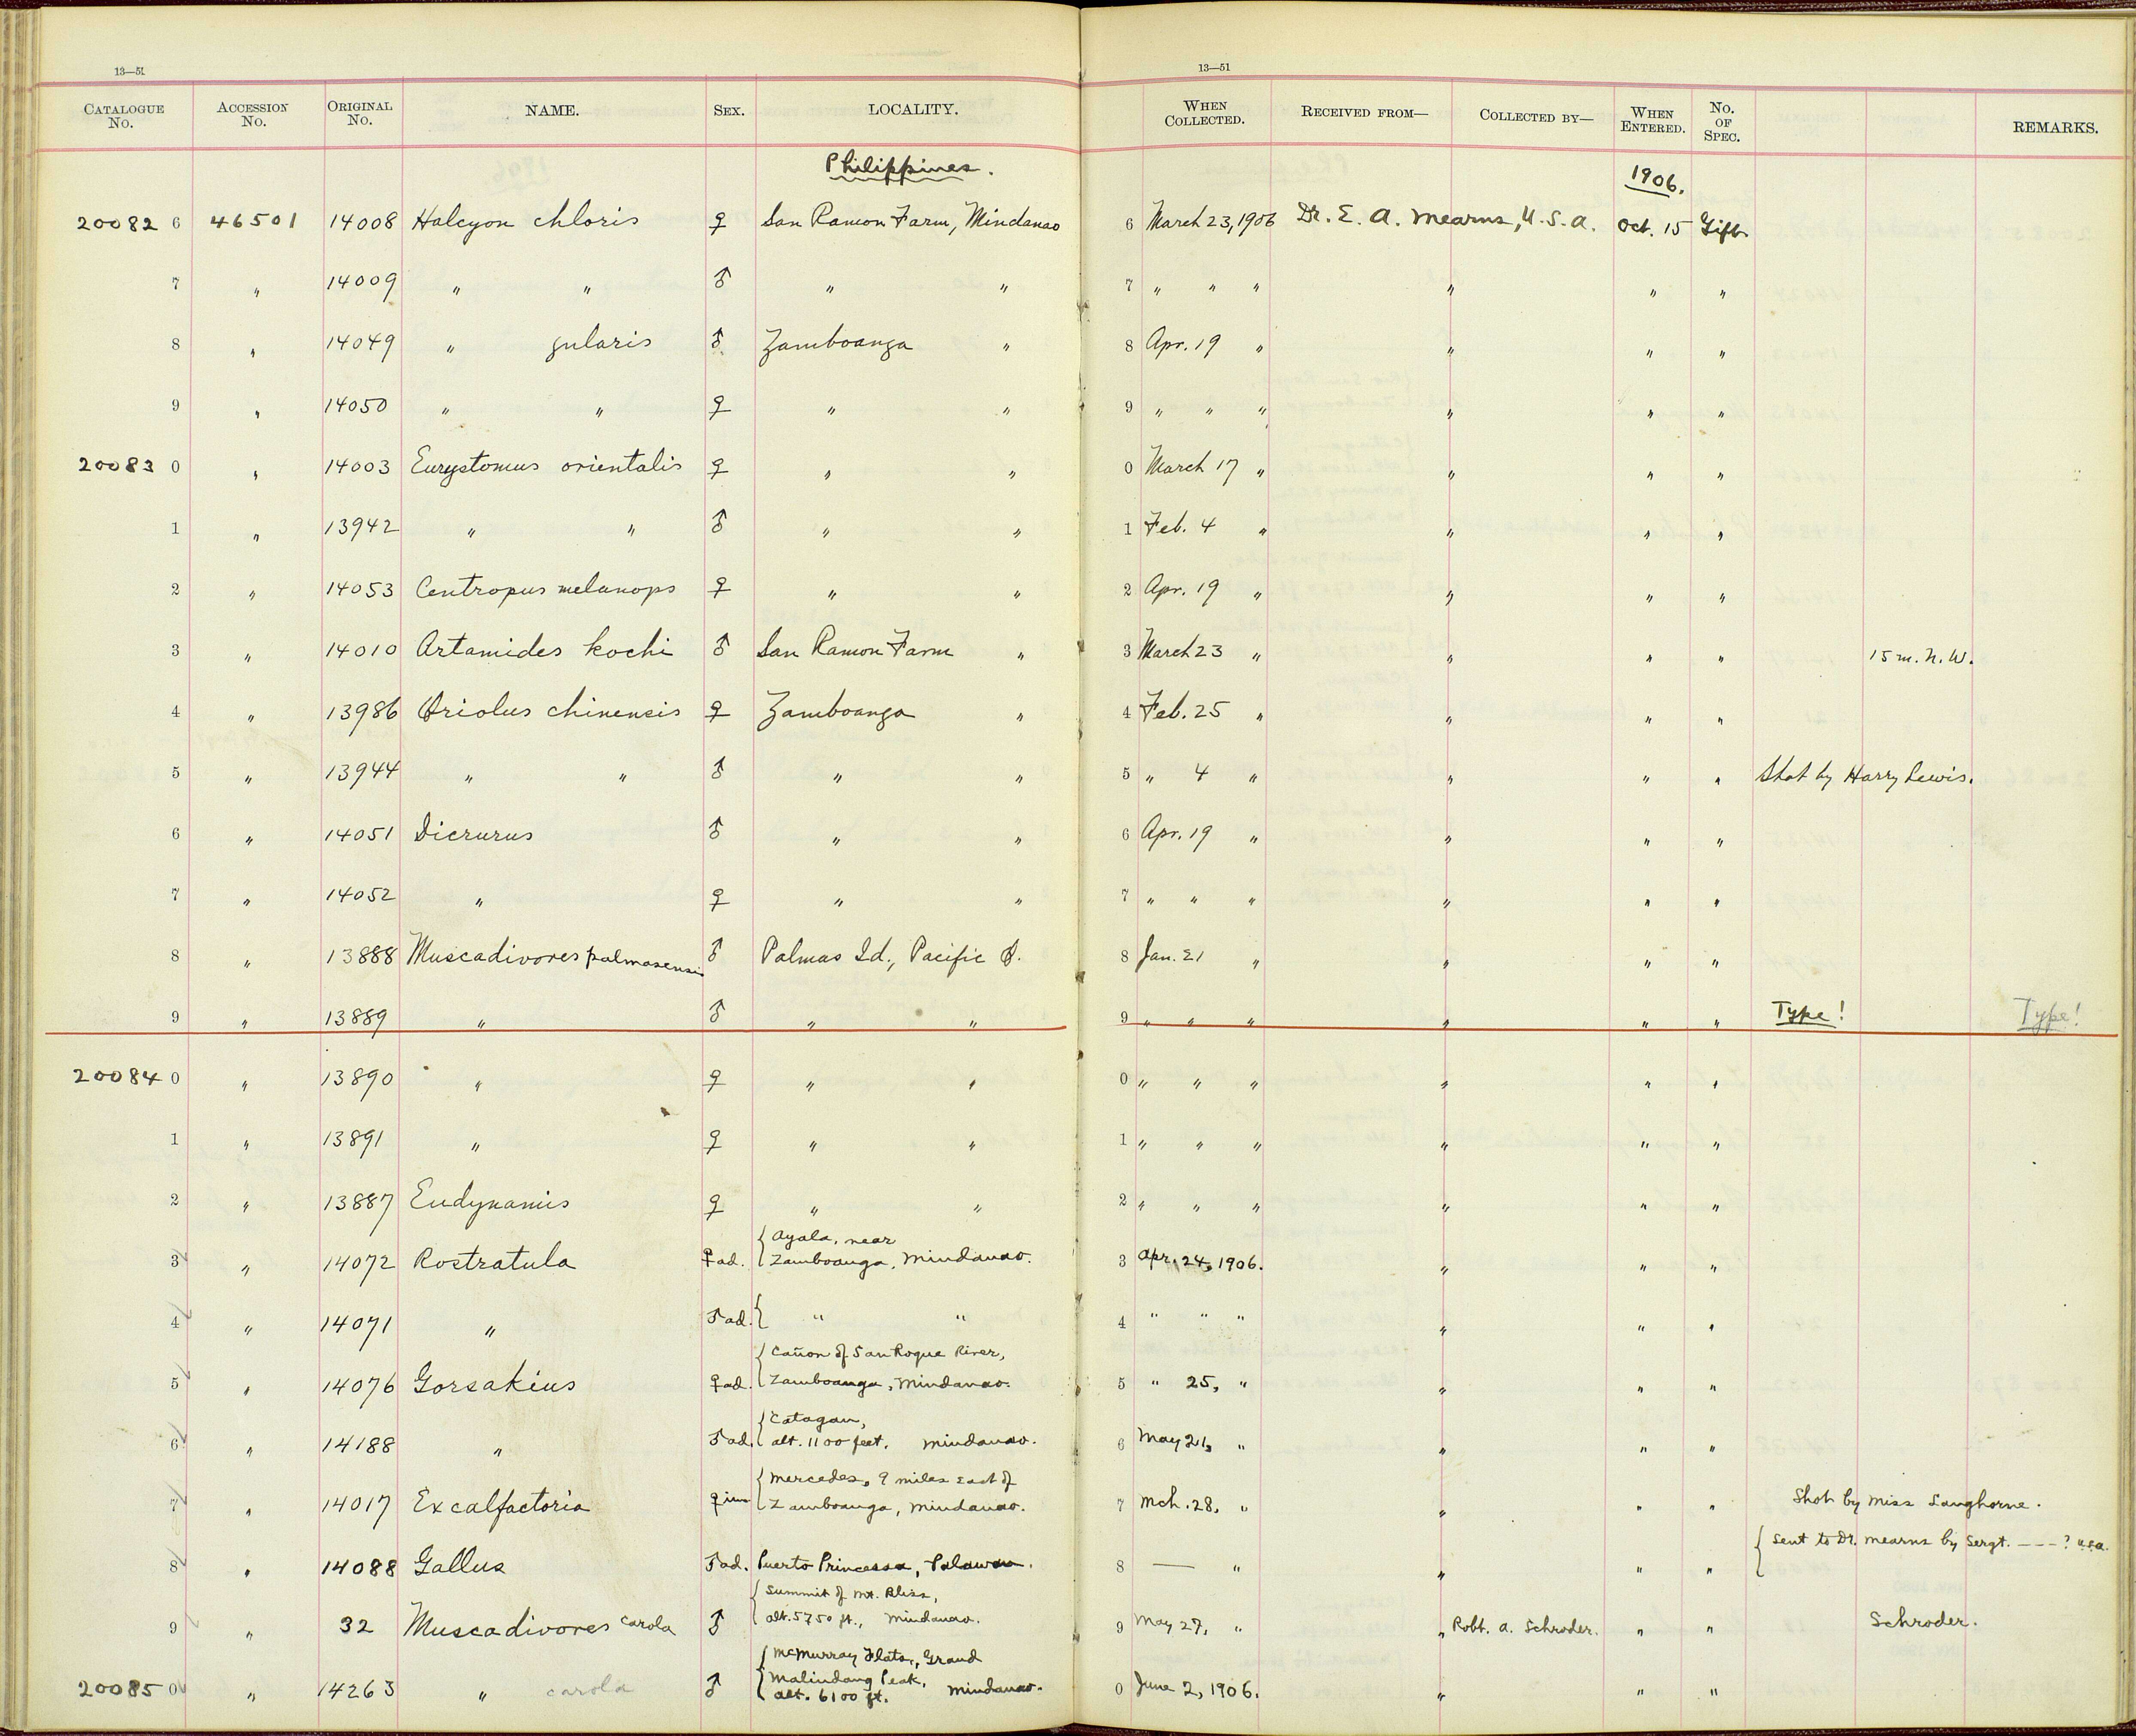 13—51 13—51
CATALOGUE No. ACCESSION No. ORIGINAL No. NAME. SEX. LOCALITY. WHEN COLLECTED. RECEIVED FROM— COLLECTED BY— WHEN ENTERED. No. OF SPEC. REMARKS.
Philippines. 1906.
20082 6 46501 14008 Halcyon chloris ♀ San Ramon Farm, Mindanao 6 March 23, 1906 Dr. E. A. Mearns, U.S.A. Oct. 15 Gift
7 " 14009 " " ♂ " " 7 " " " " " "
8 " 14049 " gularis ♂ Zamboanga " 8 Apr. 19 " " " "
9 " 14050 " " ♀ " " 9 " " " " " "
20083 0 " 14003 Eurystomus orientalis ♀ " " 0 March 17 " " " "
1 " 13942 " " ♂ " " 1 Feb. 4 " " " "
2 " 14053 Centropus melanops ♀ " " 2 Apr. 19 " " " "
3 " 14010 Artamides kochi ♂ San Ramon Farm " 3 March 23 " " " " 15 m. N.W.
4 " 13986 Oriolus chinensis ♀ Zamboanga " 4 Feb. 25 " " " "
5 " 13944 " " ♂ " " 5 " 4 " " " " Shot by Harry Lewis.
6 " 14051 Dicrurus ♂ " " 6 Apr. 19 " " " "
7 " 14052 " ♀ " " 7 " " " " " "
8 " 13888 Muscadivores palmasensis ♂ Palmas Id., Pacific O. 8 Jan. 21 " " " "
9 " 13889 " ♂ " " 9 " " " " " " Type! Type!
20084 0 " 13890 " ♀ " " 0 " " " " " "
1 " 13891 " ♀ " " 1 " " " " " "
2 " 13887 Eudynamis ♀ " " 2 " " " " " "
{ Ayala, near
3 " 14072 Rostratula ♀ad. Zamboanga, Mindanao. 3 Apr. 24, 1906. " " "
4 " 14071 " ♂ad. { " " 4 " " " " " "
{ Cañon of San Roque River,
5 " 14076 Gorsakius ♀ad. Zamboanga, Mindanao. 5 " 25, " " " "
{ Catagan,
6 " 14188 " ♂ad. alt. 1100 feet. Mindanao. 6 May 21, " " " "
{ Mercedes, 9 miles East of
7 " 14017 Excalfactoria ♀ im Zamboanga, Mindanao. 7 Mch. 28, " " " " Shot by Miss Langhorne.
8 " 14088 Gallus ♂ad. Puerto Princessa, Palawan. 8 — " " " " { Sent to Dr. Mearns by Sergt. ---? U.S.A.
{ Summit of Mt. Bliss,
9 " 32 Muscadivores carola ♂ alt. 5750 ft., Mindanao. 9 May 27, " " Robt. A. Schroder. " " Schroder.
{ McMurray Flats, Grand
Malindang Peak,
20085 0 " 14263 " carola ♂ alt. 6100 ft. Mindanao. 0 June 2, 1906. " " "